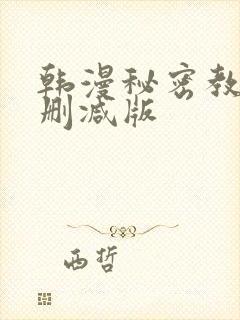 韩漫秘密教
删减版
西哲